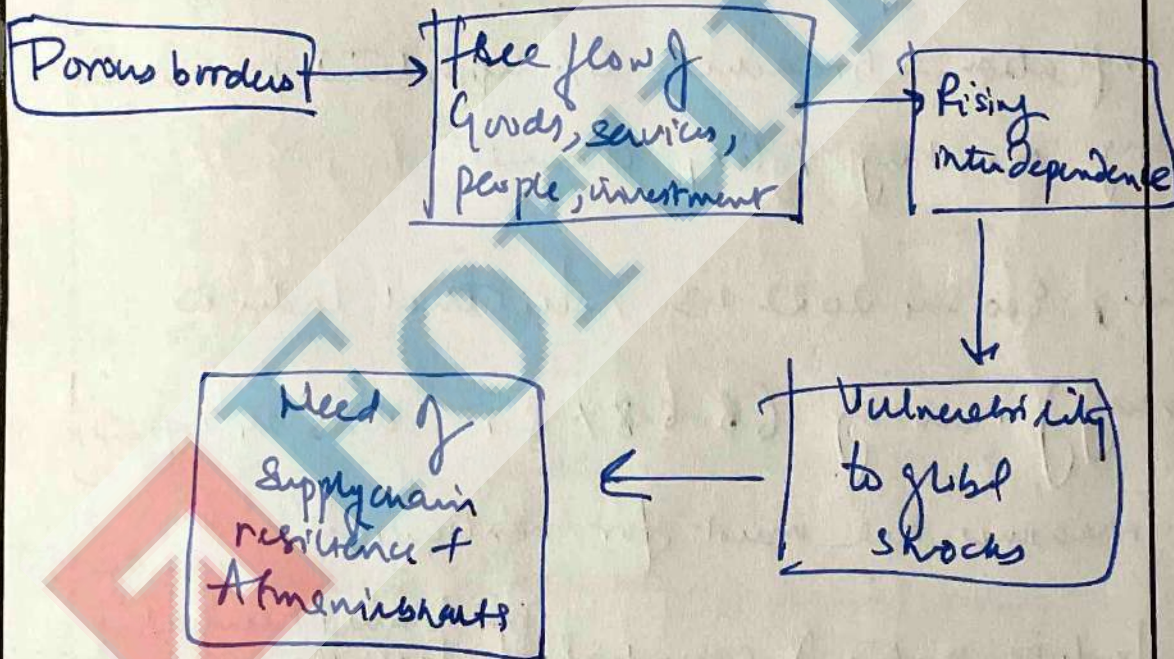 Porous borders
free flow of
Goods, services,
people, investment
Rising
interdependence
Vulnerability
to global
shocks
Need of
Supply chain
resilience +
Atmanirbharta
ForUM